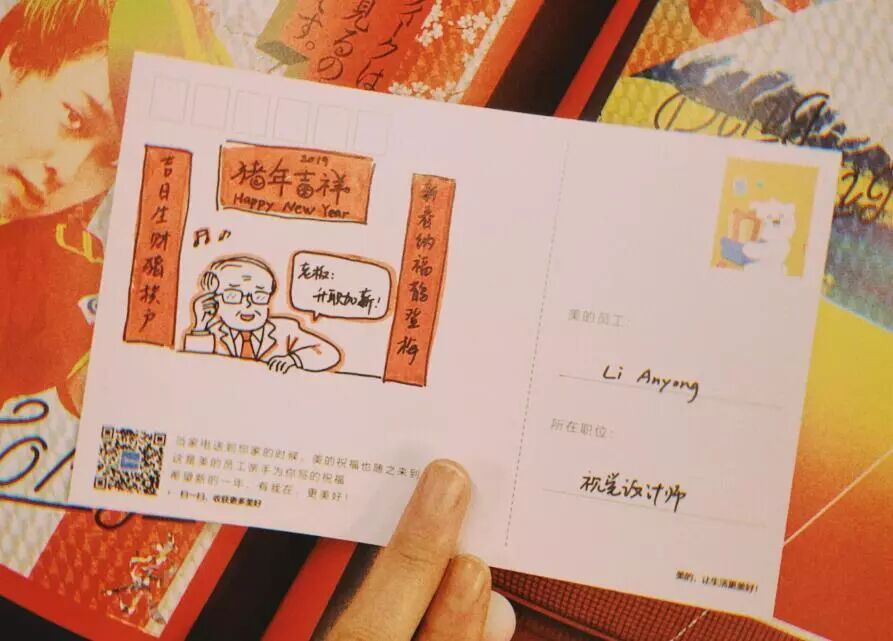 ィークは
見るの
です。
2019
猪年吉祥
Happy New Year
吉日生财猪拱户
新春纳福鹊登梅
老板：
升职加薪！
美的员工：
Li Anyong
所在职位：
视觉设计师
当家电送到你家的时候，美的祝福也随之来到
这是美的员工亲手为你写的祝福
希望新的一年，有我在，更美好！
扫一扫，收获更多美好
美的，让生活更美好！